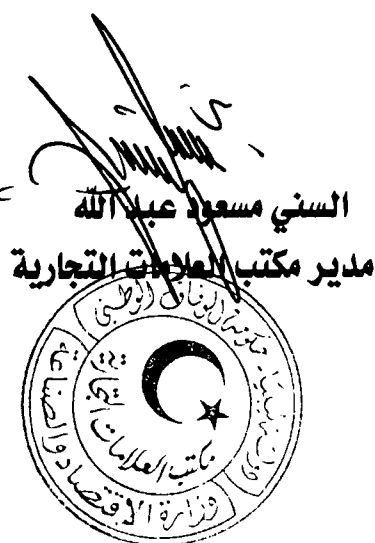 السني مسعود عبد الله
مدير مكتب العلامات التجارية
دولة ليبيا - حكومة الوفاق الوطني
وزارة الاقتصاد والصناعة
مكتب العلامات التجارية